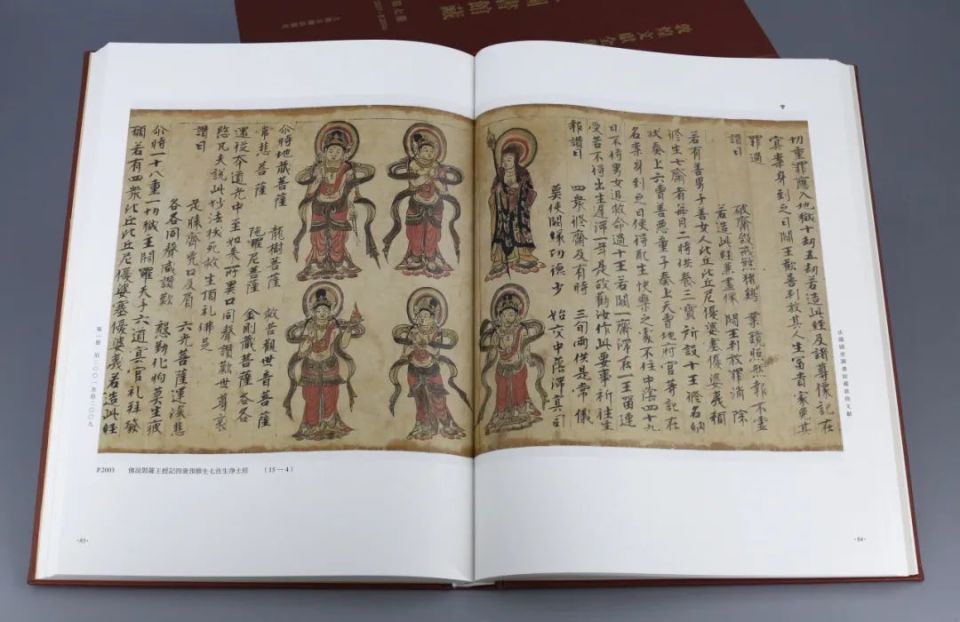 國書館藏
敦煌文獻全
法國國家圖書館藏敦煌文獻
切重罪應入地獄十劫五劫若造此經及諸尊像記在
冥案身到之日閻王歡喜判放其人生富貴家免其
罪過
讚曰 破齋毀戒煞猪雞 業鏡照然報不虛
若造此經兼畫像 閻王判放罪消除
若有善男子善女人比丘比丘尼優婆塞優婆夷預
修生七齋者每月二時供養三寶所設十王修名納
狀奏上六曹善惡童子奏上天曹地府官等記在
名案身到之日便得配生快樂之處不住中陰四十九
日不待男女追救命過十王若闕一齋滯在一王留連
受苦不得出生遲滯一年是故勸汝作此要事祈往生
報讚曰 四眾修齋及有時 三旬兩供是常儀
莫使闕緣功德少 始交中陰滯冥司
尒時地藏菩薩 龍樹菩薩 敬首觀世音菩薩
常悲菩薩 陁羅尼菩薩 金剛藏菩薩各各
還從本道光中至如來所異口同聲讚歎世尊哀
愍凡夫說此妙法拔死救生頂礼佛足
讚曰 足膝齊胷口及眉 六光菩薩運深悲
各各同聲咸讚歎 慇勤化物莫生疲
尒時一十八重一切獄王閻羅天子六道冥官礼拜發
願若有四眾比丘比丘尼優婆塞優婆夷若造此經
第一册 伯二〇〇一至伯二〇〇九
P.2003 佛說閻羅王授記四衆預修生七往生淨土經 (15—4)
·83·
·84·